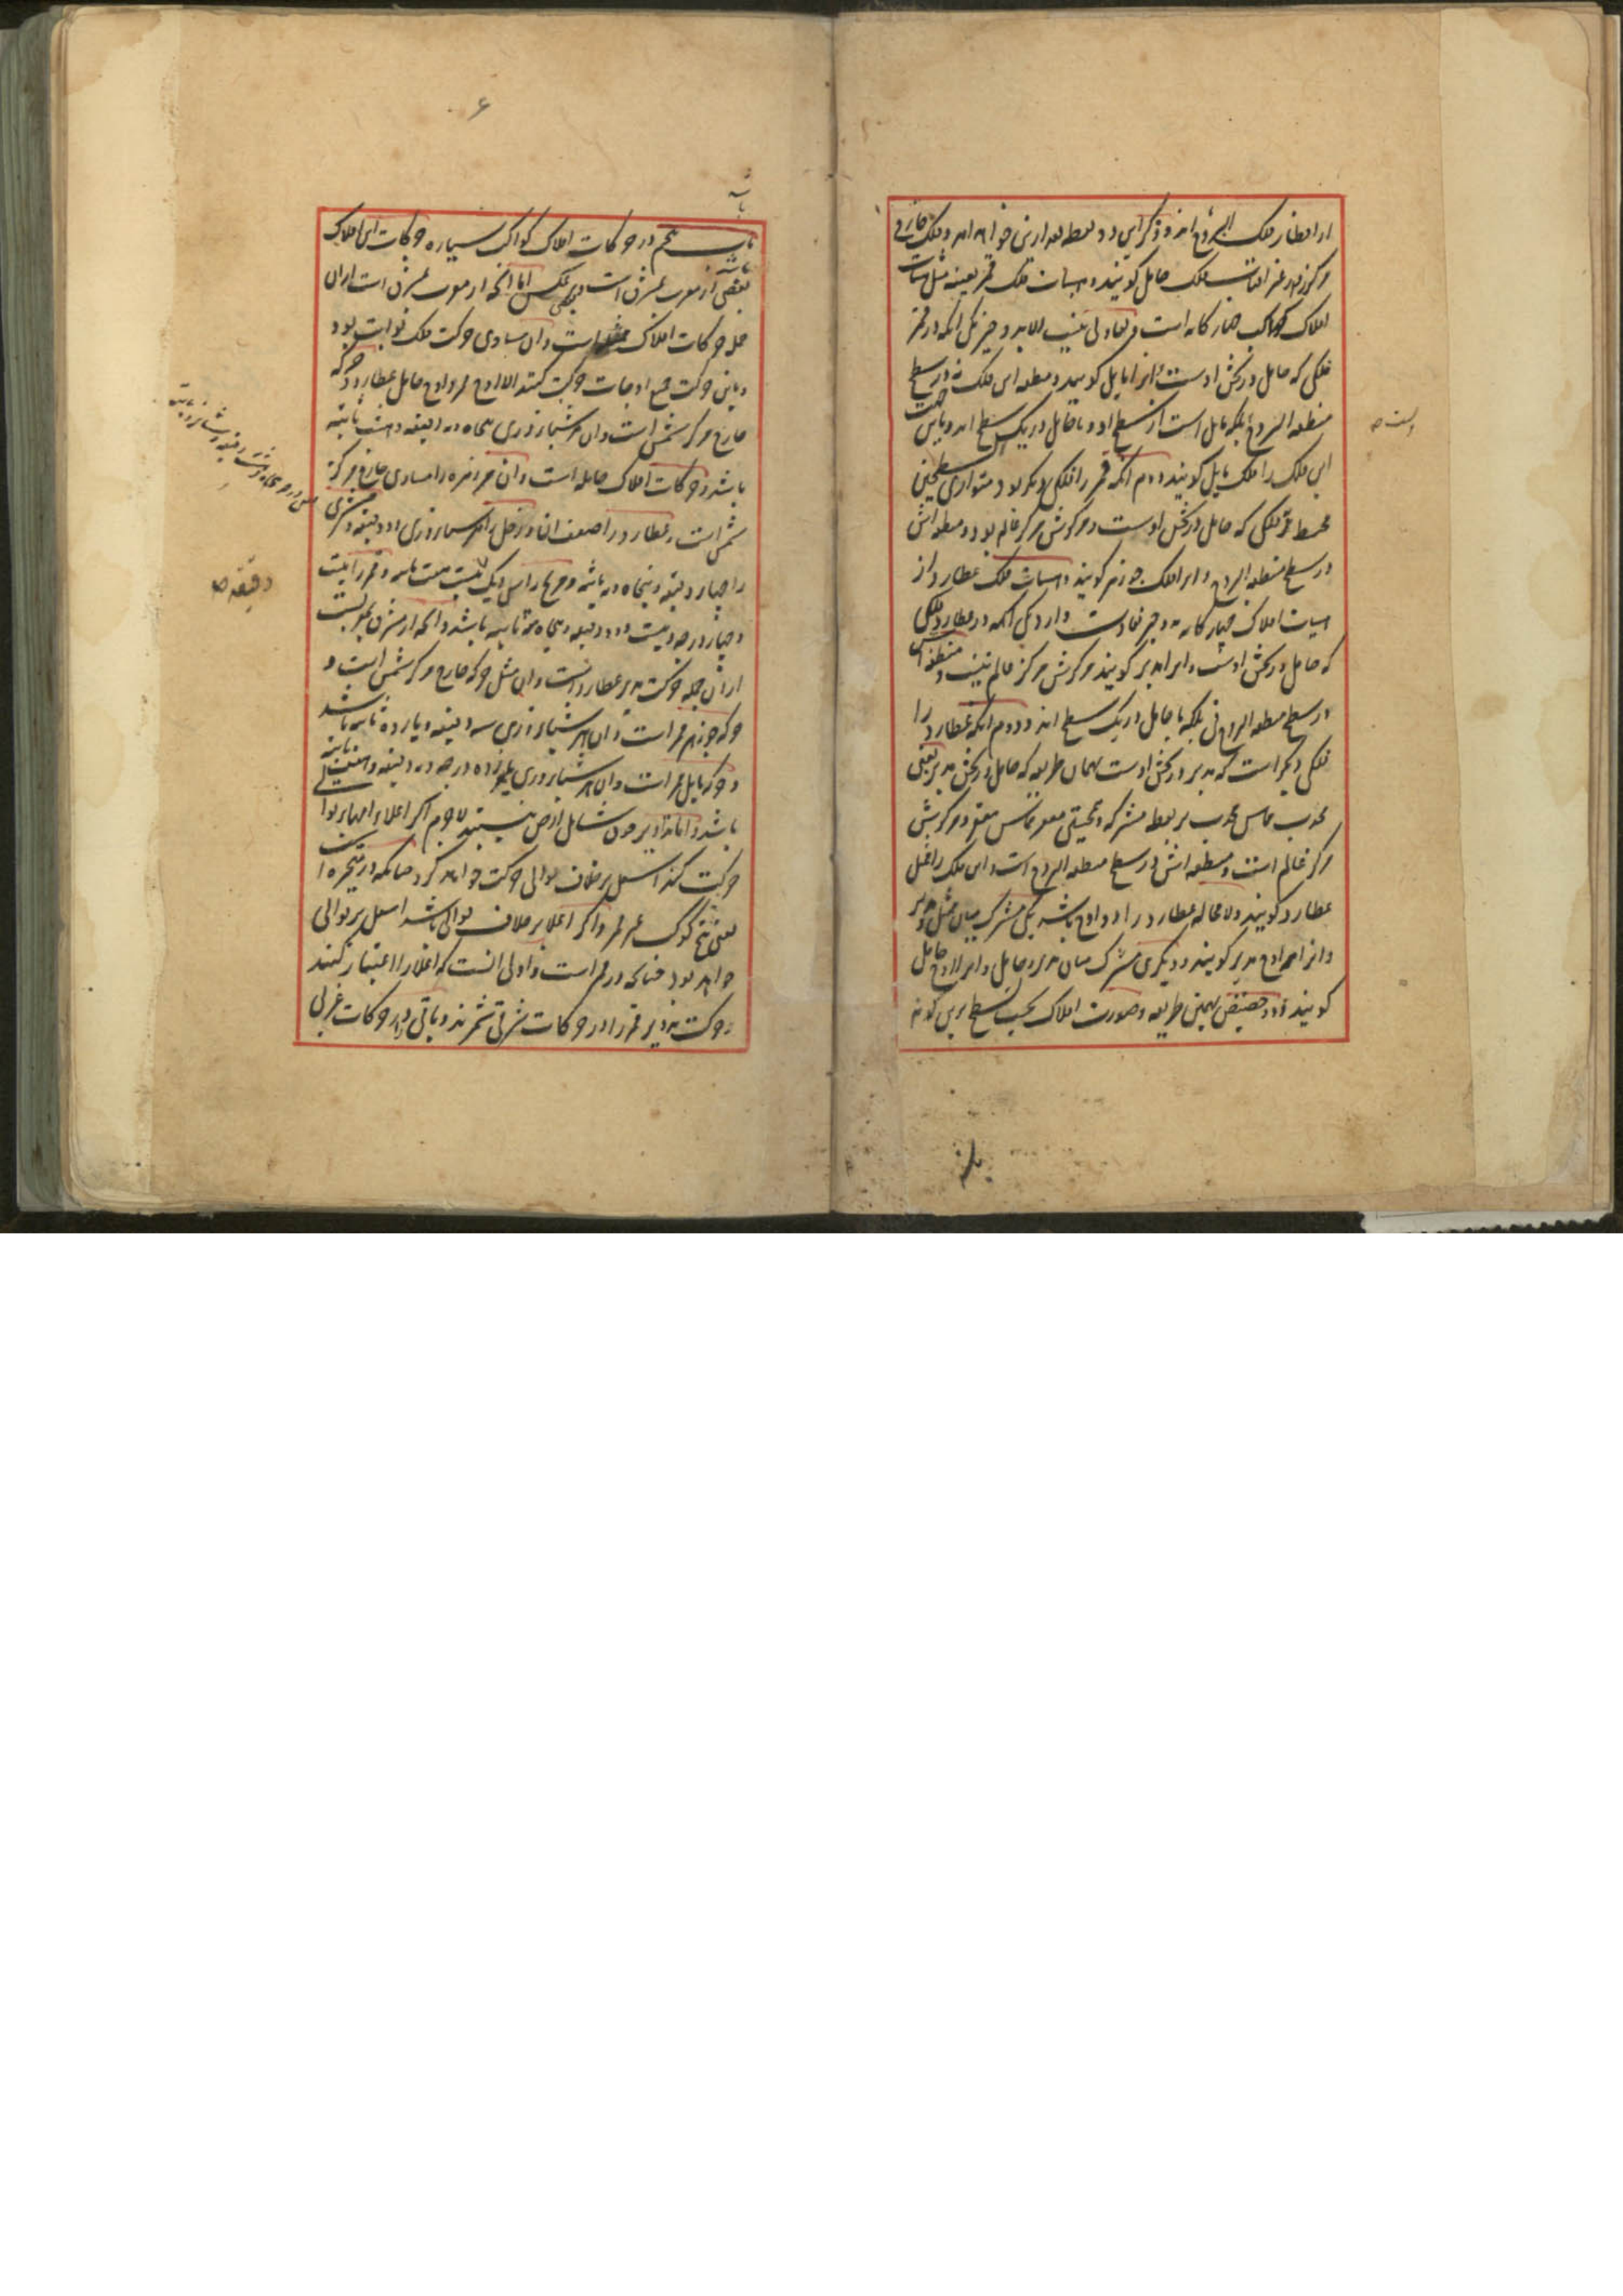 از اقطار فلک البروج اند و ذکر این دو نقطه بعد ازین خواهد آمد و فلک خارج
مرکز را در غیر آفتاب فلک حامل گویند و هیأت فلک قمر بعینه مثل هیأت
افلاک کواکب چهارگانه است و تفاوتی نیست الا بدو چیز یکی آنکه در قمر
فلکی که حامل در ثخن اوست و آنرا مایل گویند و منطقه این فلک نه در سطح
منطقة البروج بلکه مایل است از سطح او و با حامل در یک سطح اند و باین جهت
این فلک را فلک مایل گویند دوم آنکه قمر را فلکی دیگر بود متوازی السطحین
محیط بر فلکی که حامل در ثخن اوست و مرکزش مرکز عالم بود و منطقه اش
در سطح منطقة البروج و آنرا فلک جوزهر گویند و هیأت فلک عطارد از
هیأت افلاک چهارگانه بدو چیز تفاوت دارد یکی آنکه در عطارد فلکی
که حامل در ثخن اوست و آنرا مدیر گویند مرکزش مرکز عالم نیست و منطقه اش
در سطح منطقة البروج نی بلکه با حامل در یک سطح اند و دوم آنکه عطارد را
فلکی دیگر است که مدیر در ثخن اوست بهمان طریقه که حامل در ثخن مدیر یعنی
محدب مماس محدب بر نقطه مشترکه و همچنین مقعر مماس مقعر و مرکزش
مرکز عالم است و منطقه اش در سطح منطقة البروج است و این فلک را ممثل
عطارد گویند و لا محاله عطارد را دو اوج باشد یکی مشترک میان ممثل و مدیر
و آنرا اوج مدیر گویند و دیگری مشترک میان مدیر و حامل و آنرا اوج حامل
گویند و دو حضیض بهمین طریقه و صورت افلاک بحسب سطح برین گونه
باب
است صح
۶
باب پنجم در حرکات افلاک کواکب سیاره حرکات این افلاک
بعضی از مغرب بمشرق است و بعضی بر عکس اما آنچه از مغرب بمشرق است ازان
جمله حرکات افلاک ممثله است و آن مساوی حرکت فلک ثوابت بود
و باین حرکت جمیع اوجات حرکت کنند الا اوج قمر و اوج حامل عطارد و حرکه
خارج مرکز شمس است و آن در شبانروزی پنجاه و نه دقیقه و هشت ثانیه
باشد و حرکات افلاک حامله است و آن مر زهره را مساوی خارج مرکز
شمس است و عطارد را ضعف آن و زحل را در شبانروزی دو دقیقه و مشتری
را چهار دقیقه و پنجاه و نه ثانیه و مریخ را سی و یک دقیقه و بیست و هفت ثانیه و قمر را بیست
و چهار درجه و بیست و دو دقیقه و پنجاه و سه ثانیه باشد و آنچه از مشرق بمغربست
ازان جمله حرکت مدیر عطارد است و آن مثل حرکه خارج مرکز شمس است و
حرکه جوزهر قمر است و آن در شبانروزی سه دقیقه و یازده ثانیه باشد
و حرکه مایل قمر است و آن در شبانروزی یازده درجه و نه دقیقه و هفت ثانیه
باشد و اما تداویر چون شامل ارض نیستند لاجرم اگر اعلاء آنها بر توالی
حرکت کند اسفل بر خلاف توالی حرکت خواهد کرد چنانکه در متحیره
یعنی پنج کوکب غیر قمر و اگر اعلا بر خلاف توالی باشد اسفل بر توالی
خواهد بود چنانکه در قمر است و اولی آنست که اعلا را اعتبار کنند
و حرکت تدویر قمر را در حرکات شرقی شمرند و باقی را در حرکات غربی
دقیقه صح